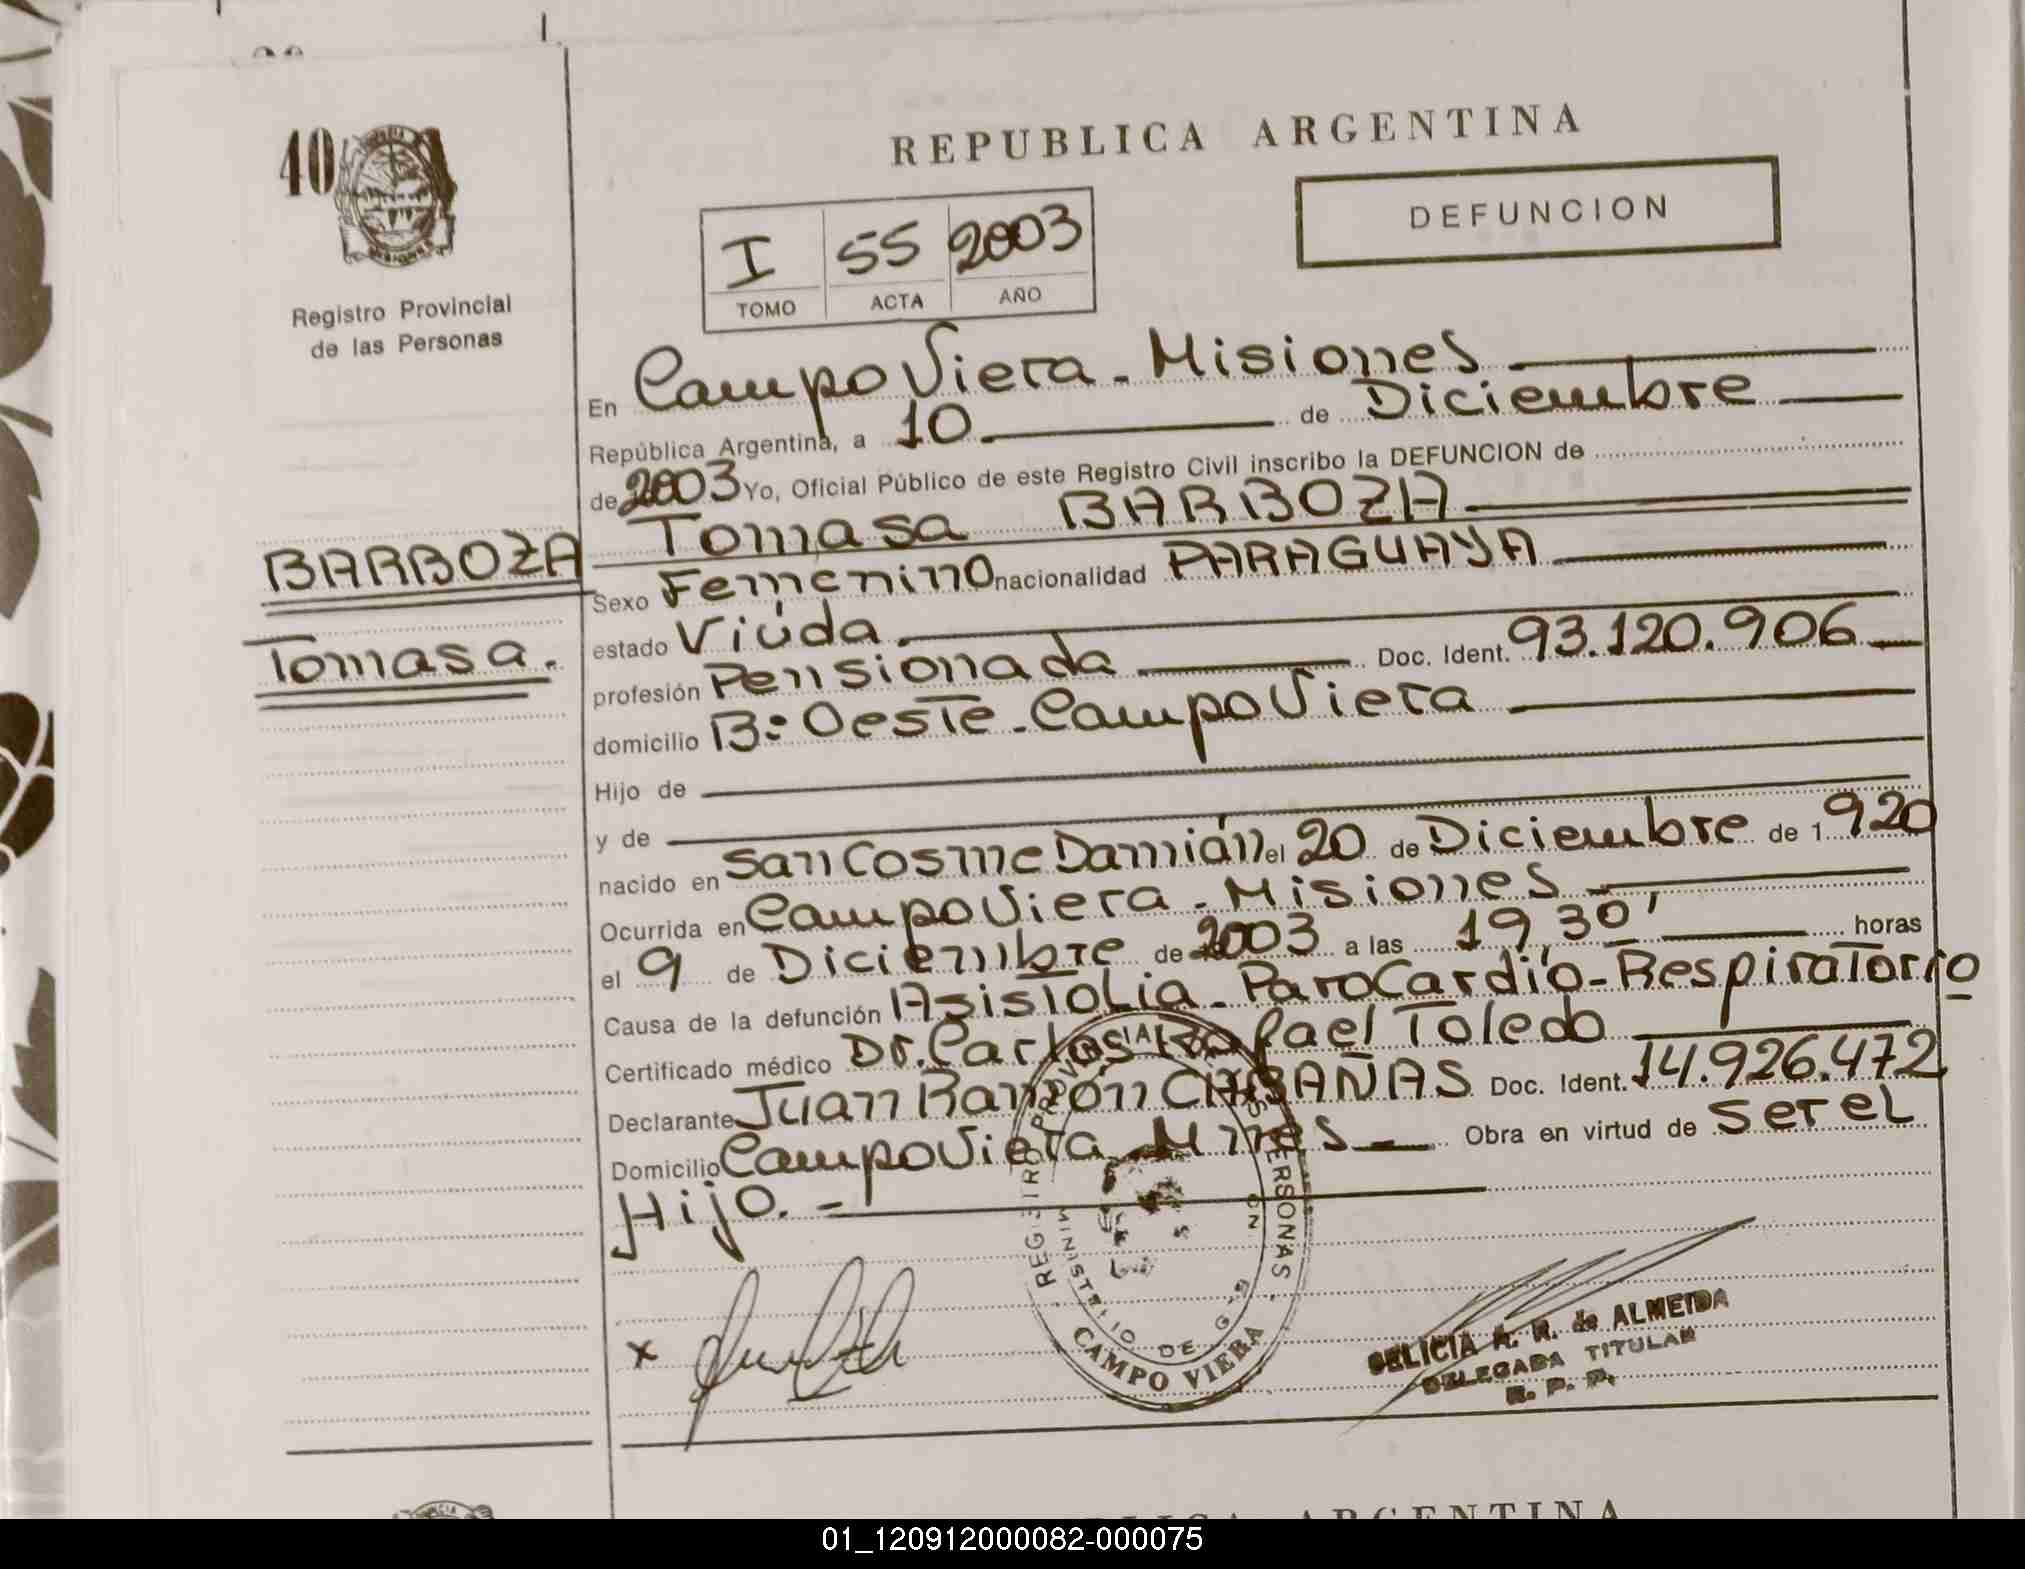 REPUBLICA ARGENTINA
40
DEFUNCION
I 55 2003
TOMO ACTA AÑO
Registro Provincial
de las Personas
En Campo Viera - Misiones
República Argentina, a 10 de Diciembre
de 2003 Yo, Oficial Público de este Registro Civil inscribo la DEFUNCION de
Tomasa BARBOZA
BARBOZA
Tomasa.
Sexo Femenino nacionalidad PARAGUAYA
estado Viúda
profesión Pensionada Doc. Ident. 93.120.906
domicilio B: Oeste - Campo Viera
Hijo de
y de
nacido en San Cosme Damián el 20 de Diciembre de 1920
Ocurrida en Campo Viera - Misiones
el 9 de Diciembre de 2003 a las 19 30' horas
Causa de la defunción Asistolia - Paro Cardio - Respiratorio
Certificado médico Dr. Carlos Rafael Toledo
Declarante Juan Ramón CABAÑAS Doc. Ident. 14.926.472
Domicilio Campo Viera - Mnes - Obra en virtud de ser el
Hijo. -
REGISTRO PROVINCIAL DE LAS PERSONAS
MINISTERIO DE G
CAMPO VIERA
x
DELICIA A. R. de ALMEIDA
DELEGADA TITULAR
R. P. P.
REPUBLICA ARGENTINA
01_120912000082-000075